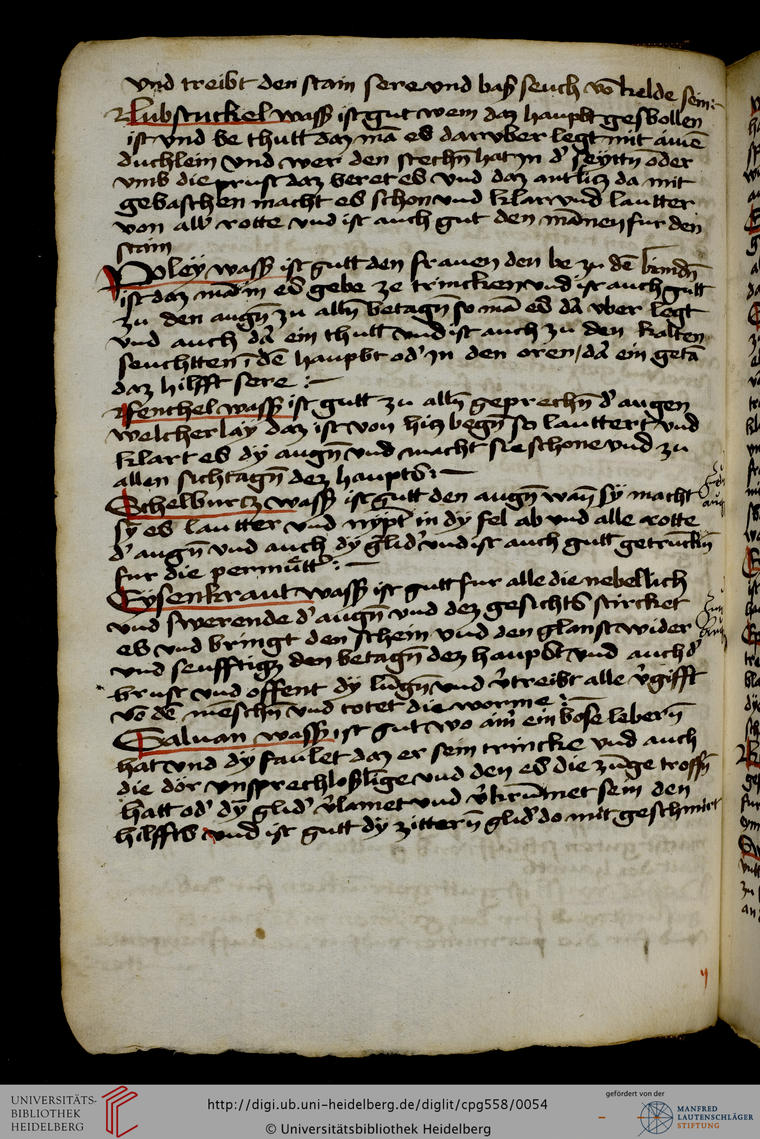 vnd treibt den stain sere vnd baß seuch vō kelde sein :-
Lubstuckel wasß ist gut wem daz haupbt gesbollen
ist vnd be thutt daz mā es darvber legt mit ainē
duchlein vnd wer den stechn̄ hat in d' seyttn̄ oder
vmb die prust daz beret es vnd daz antlicz da mit
gebaschen macht es schon vnd klar vnd lautter
von all' rotte vnd ist auch gut den mānen fur den
stain
Poleÿ wasß ist gutt den frauen den be zu dē kindn̄
ist daz mā in es gebe ze trincken vnd ist auch gutt
zu den augn̄ zu alln̄ betagn̄ so mā es dā vber legt
vnd auch dā ein thutt vnd ist auch zu den kalten
seuchttenn̄ dē haupbt od' in den oren / dā ein getā
daz hilfft sere :-
Fenchel wasß ist gutt zu alln̄ geprechn̄ d' augen
welcherlay daz ist von hicz begn̄ so lauttert vnd
klart es dÿ augn̄ vnd macht sie schone vnd zu
allen sichtagn̄ dez haupts :-
Schelburcz wasß ist gutt den augn̄ wan̄ sÿ macht
sÿ es lautter vnd nÿpt in dÿ fel ab vnd alle rotte
d' augn̄ vnd auch dÿ glid' vnd ist auch gutt getrunckn̄
fur die permutt' :-
Eysenkraut wasß ist gutt fur alle die nebellich
vnd swerende d' augn̄ vnd dez gesichts stircket
es vnd bringt den schein vnd den glanst wider
vnd seufftigz den betagn̄ dez haupbt vnd auch d'
brust vnd offent dÿ lungn̄ vnd v̄treibt alle v̄gifft
vō dē meschn̄ vnd totet die worme :-
Saluan wasß ist gut wo aim̄ ein bose leber̄n
hat vnd dÿ faulet daz er sein trincke vnd auch
die dor vnsprechloßlige vnd den es die zūge troffn̄
hatt od' dÿ glid' v̄lamet vnd v̄krūmet sein den
hilffts vnd ist gutt dÿ zitter̄n glid' do mit geschmirt
UNIVERSITÄTS-
BIBLIOTHEK
HEIDELBERG
http://digi.ub.uni-heidelberg.de/diglit/cpg558/0054
© Universitätsbibliothek Heidelberg
gefördert von der
MANFRED
LAUTENSCHLÄGER
STIFTUNG